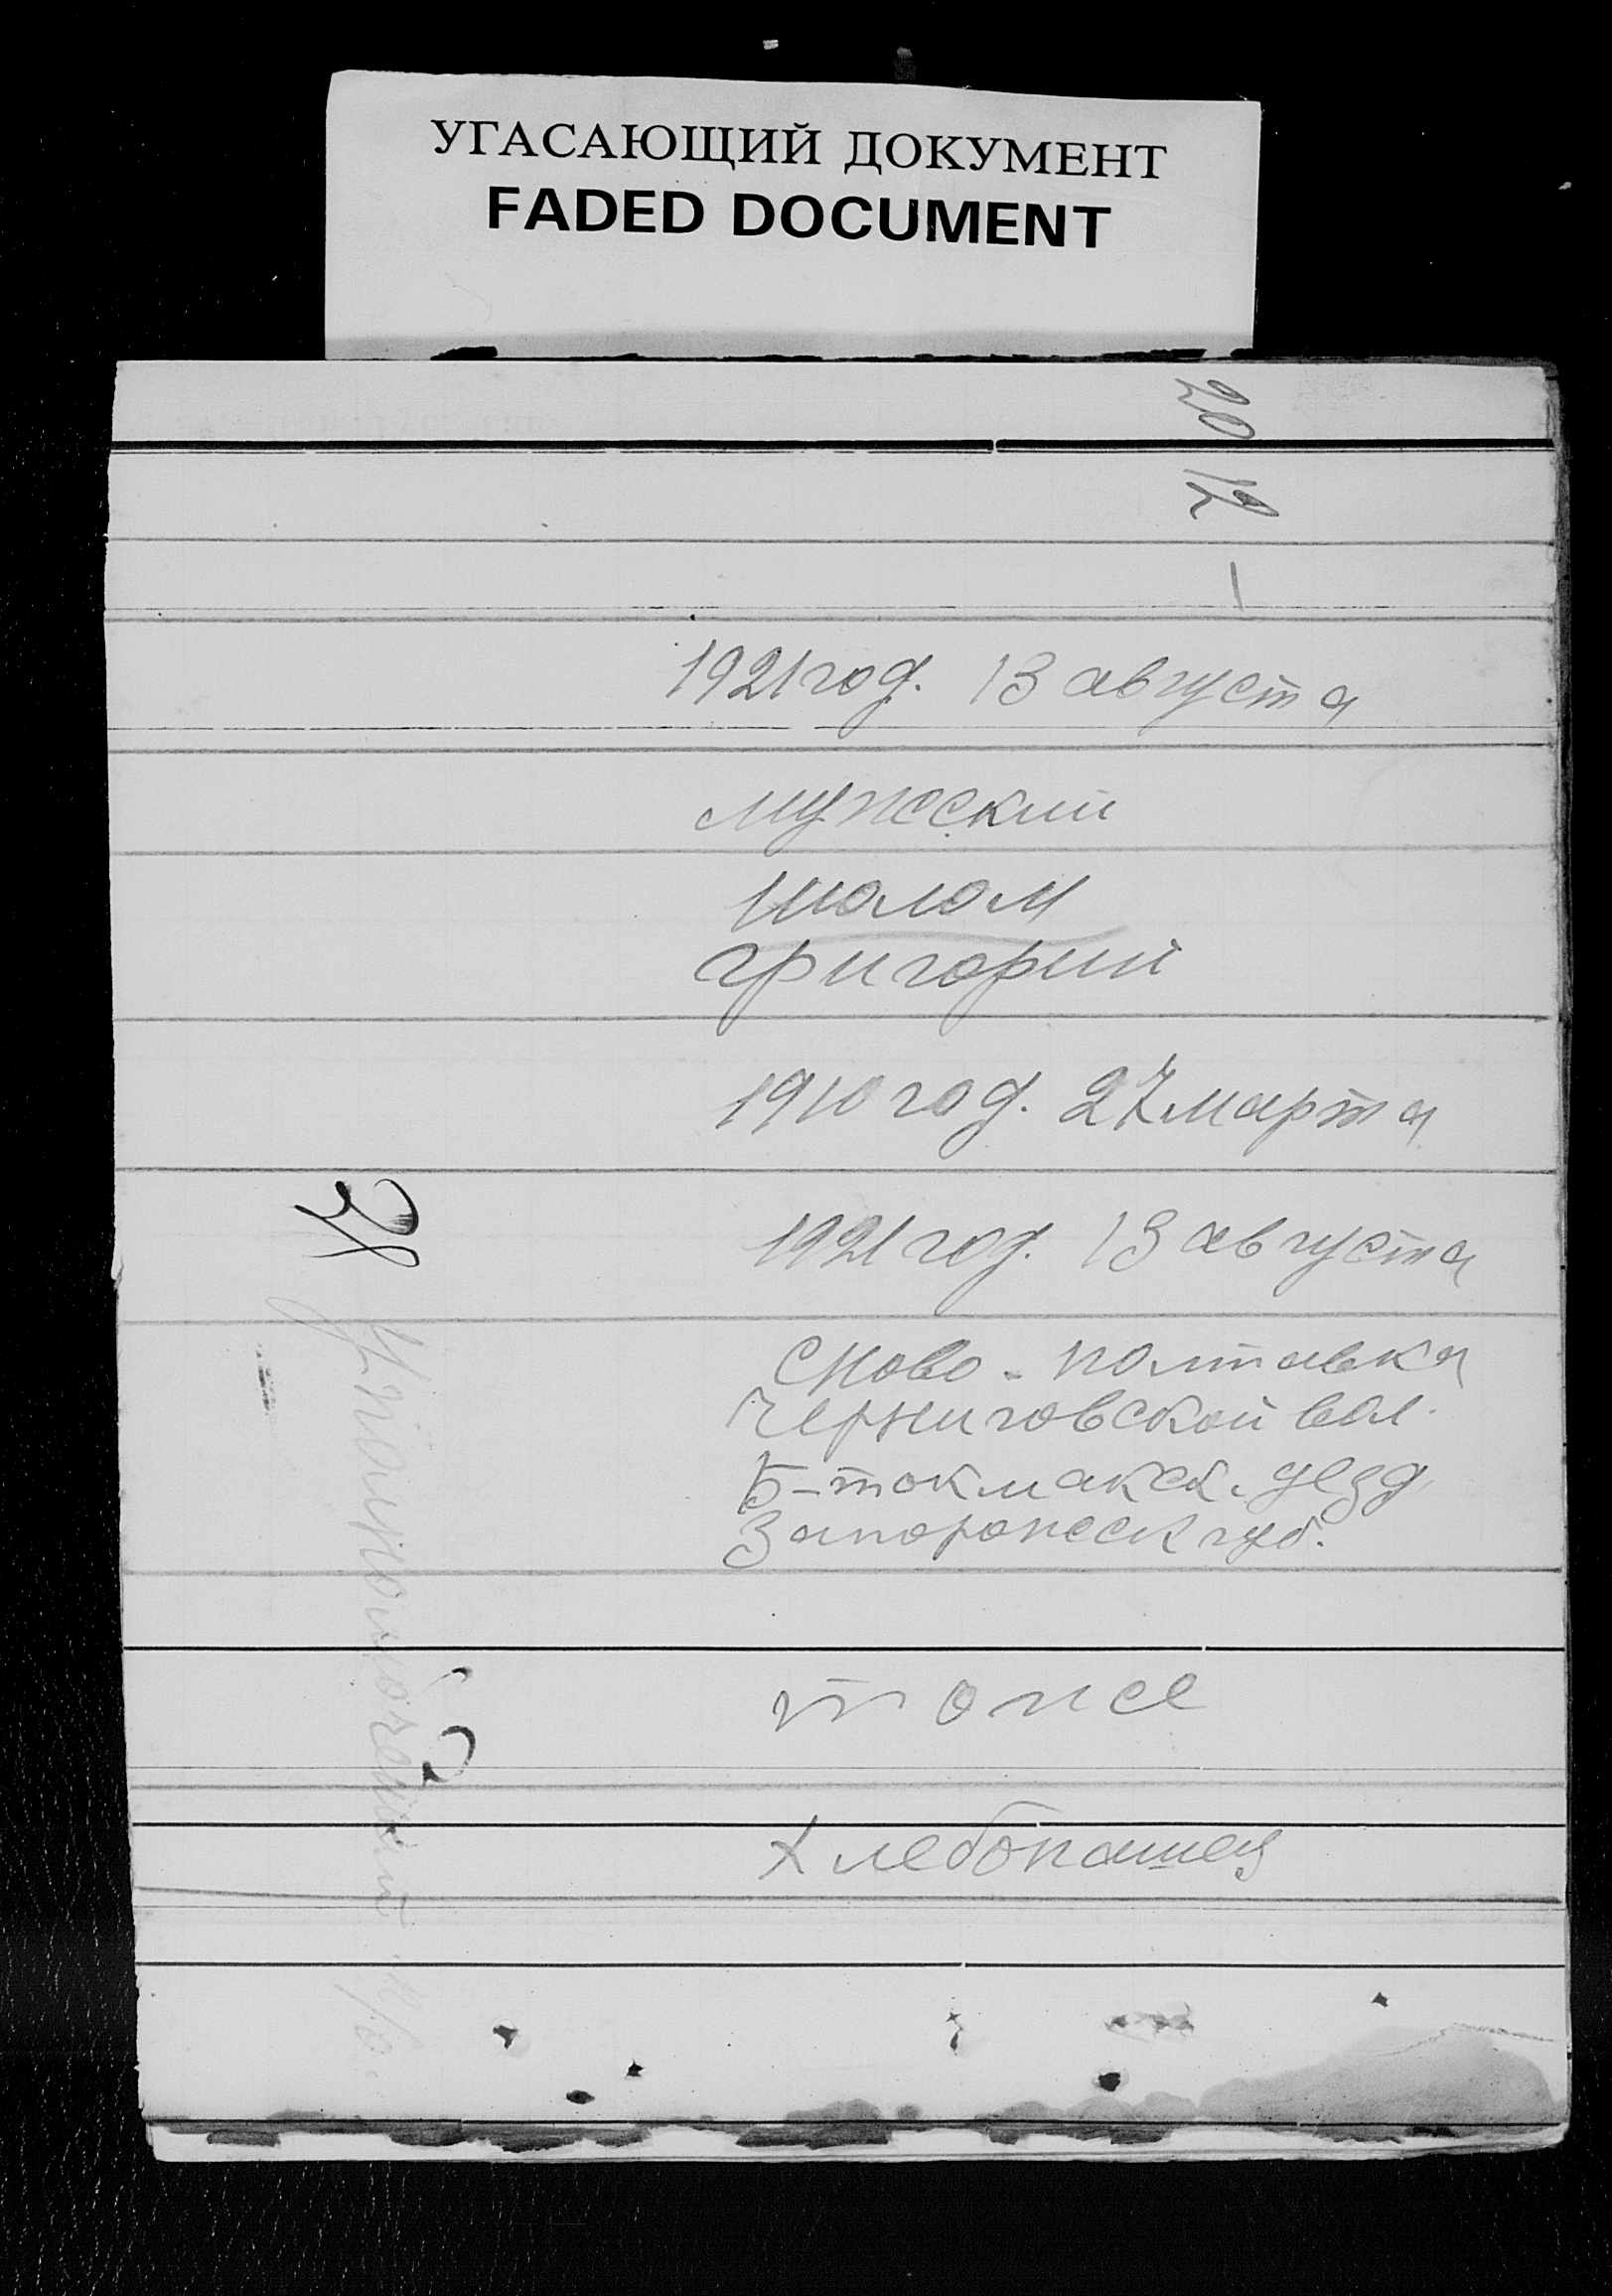 УГАСАЮЩИЙ ДОКУМЕНТ
FADED DOCUMENT
20
12
1921 год. 13 августа
мужской
Шолом
Григорий
1910 год. 27 марта
1921 год. 13 августа
С Ново - полтавка
Черниговской вол.
Б-токмакск. уезд
Запорожск губ.
тоже
Хлебопашец